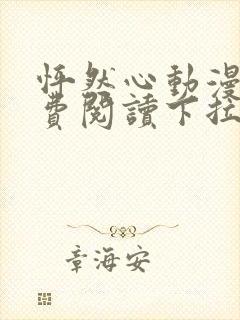 怦然心動漫
費閱讀下拉
章海安